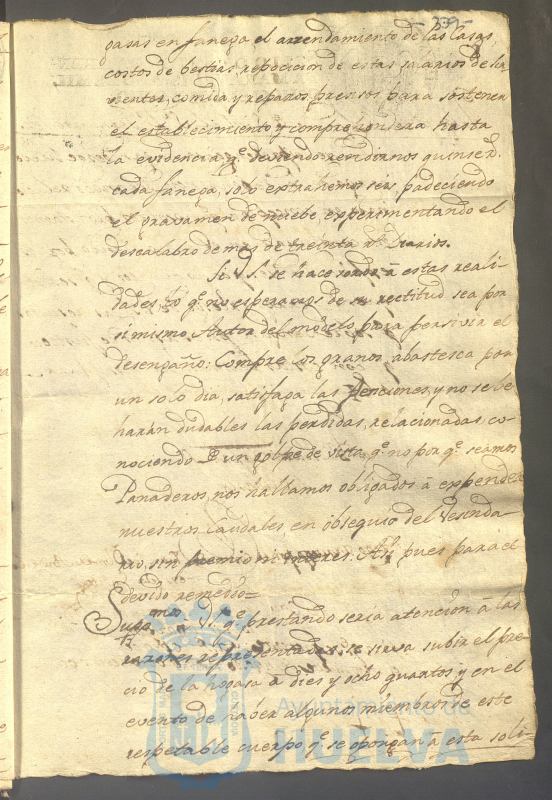 -339-
gasas en fanega el arrendamiento de las Casas
costos de bestias, reposicion de estas salarios de sir
vientes, comida y reparos presisos para sostener
el establecimiento y comprehendera hasta
la evidencia q.e deviendo rendirnos quinse r.s
cada fanega, solo extrahemos seis padeciendo
el gravamen de nuebe, experimentando el
descalabro de mas de treinta r.s diarios.
Si V.S. se hace sordo â estas reali
dades, lo q.e no esperamos de su rectitud sea por
si mismo Autor del modelo para persivir el
desengaño: Compre los granos, abastesca por
un solo dia, satisfaga las Penciones, y no se le
harán dudables las perdidas relacionadas, co-
nociendo de un golpe de vista q.e no por q.e seamos
Panaderos, nos hallamos obligados â expender
nuestros Caudales en obsequio del Vesinda-
rio, sin premio ni interes. Asi pues para el
devido remedio =
Sup.mos â V.S. q.e prestando seria atención â las
razones representadas, se sirva subir el pre
cio de la hogasa â dies y ocho quartos y en el
evento de haber algunos miembros de este
respetable cuerpo q.e se opongan â esta soli-
Ayuntamiento de
HUELVA